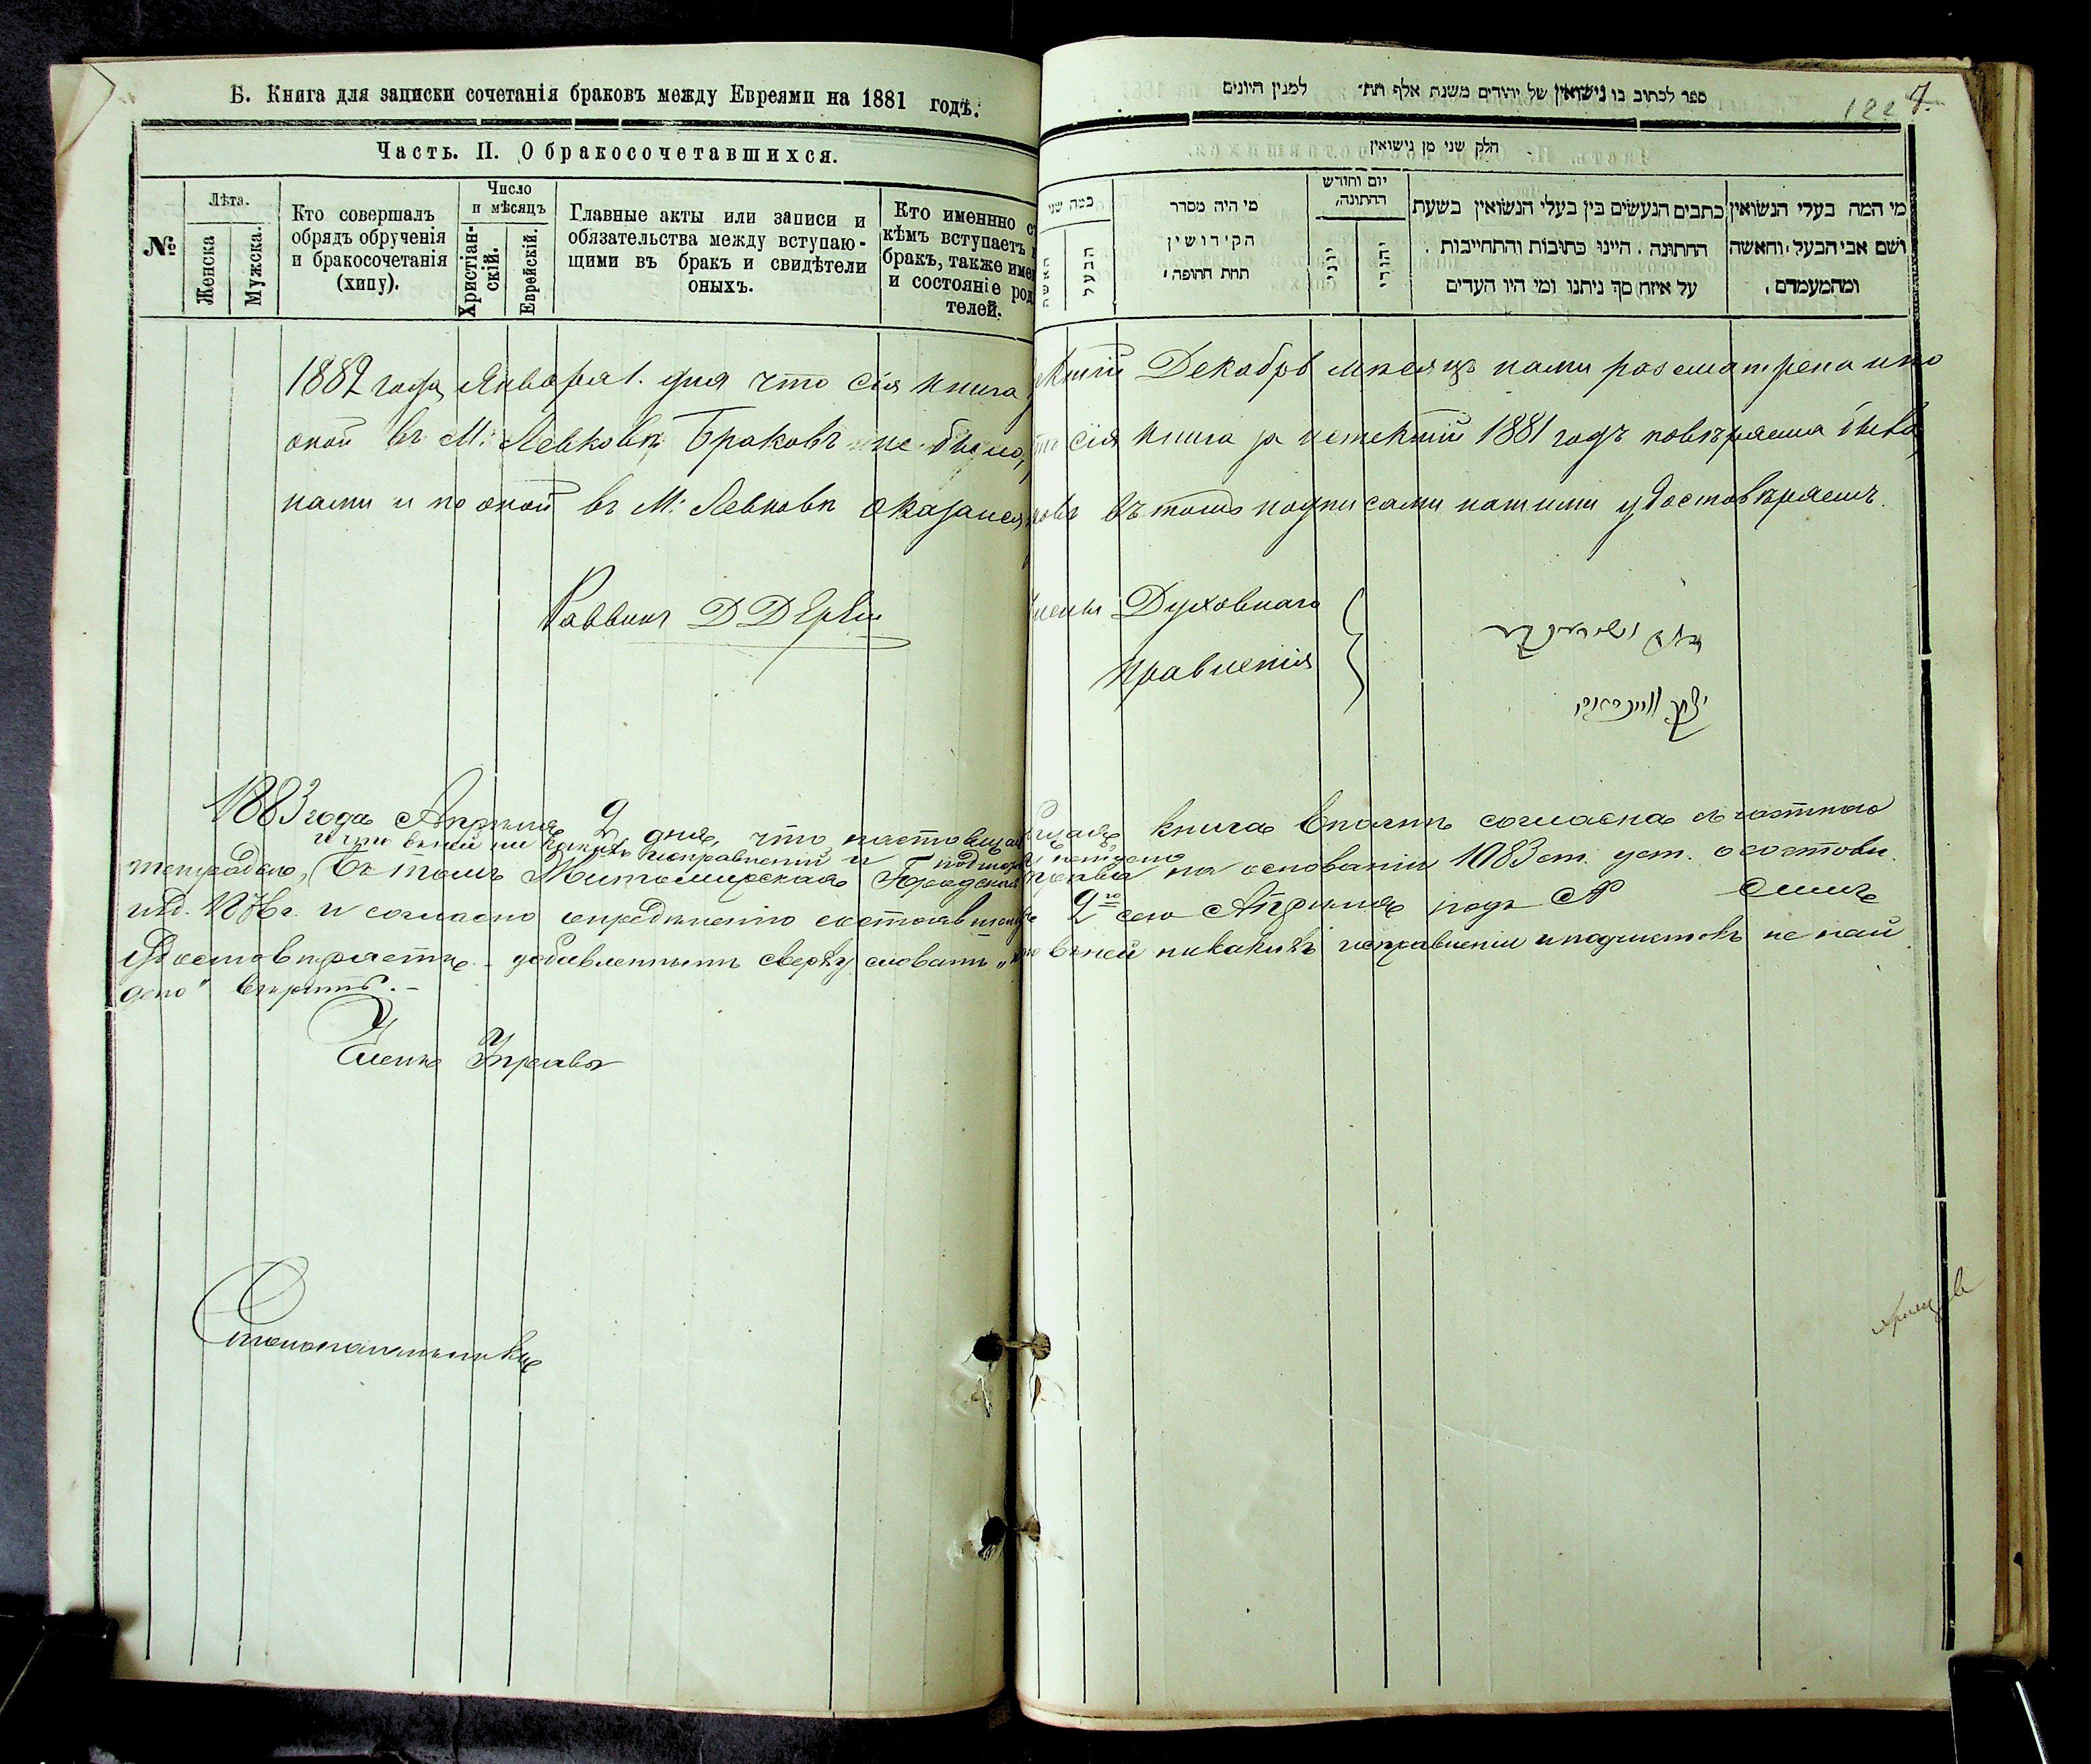 Б. Книга для записки сочетанія браковъ между Евреями на 1881 годъ.
Часть. II. О бракосочетавшихся.
№
Лѣта.
Женска
Мужска.
Кто совершалъ
обрядъ обрученія
и бракосочетанія
(хипу).
Число
и мѣсяцъ
Христіан-
скій.
Еврейскій.
Главные акты или записи и
обязательства между вступаю-
щими въ бракъ и свидѣтели
оныхъ.
Кто именно съ
кѣмъ вступаетъ
бракъ, также име
и состояніе род
телей.
ספר לכתוב בו נישואין של יהודים משנת אלף תת׳ למנין היונים
122 7.
חלק שני מן נישואין
כמה שני
האשה
הבעל
מי היה מסדר
הקידושין
תחת החופה
יום וחודש
החתונה
יוני
יהודי
כתבים הנעשים בין בעלי הנשואין בשעת
החתונה. היינו כתובות והתחייבות.
על איזה סך ניתנו ומי היו העדים
מי המה בעלי הנשואין
ושם אבי הבעל והאשה
ומהמעמדם
1882 года Января 1. дня что сія книга Декабрь мѣсяцъ нами разсматрена и по
оной въ М: Левковѣ Браковъ не было, сія книга за истекшій 1881 годъ повѣряема была
нами и по оной въ М: Левковѣ въ томъ подписами нашими удостовѣряемъ.
Раввинъ
Духовнаго
правленія
1883 года Апрѣля 2 дня, что настоящая книга вполнѣ согласна съ частною
и что въ ней никакихъ исправленій и подчистокъ не найдено
тетрадью, Въ томъ Житомирская Городская Управа на основаніи 1083 ст. уст. о состоян.
изд. 1876 г. и согласно опредѣленію 2го сего Апрѣля подъ № симъ
удостовѣряетъ. добавленнымъ сверху словамъ „что въ ней никакихъ исправленій и подчистокъ не най
дено" вѣрить.-
Членъ Управы